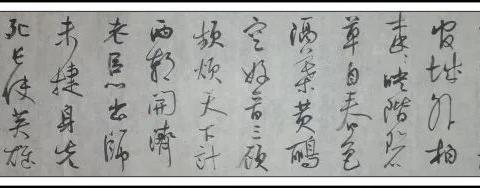 官城外柏
森々映階碧
草自春色
隔葉黄鸝
空好音三顧
頻煩天下計
兩朝開濟
老臣心出師
未捷身先
死長使英雄